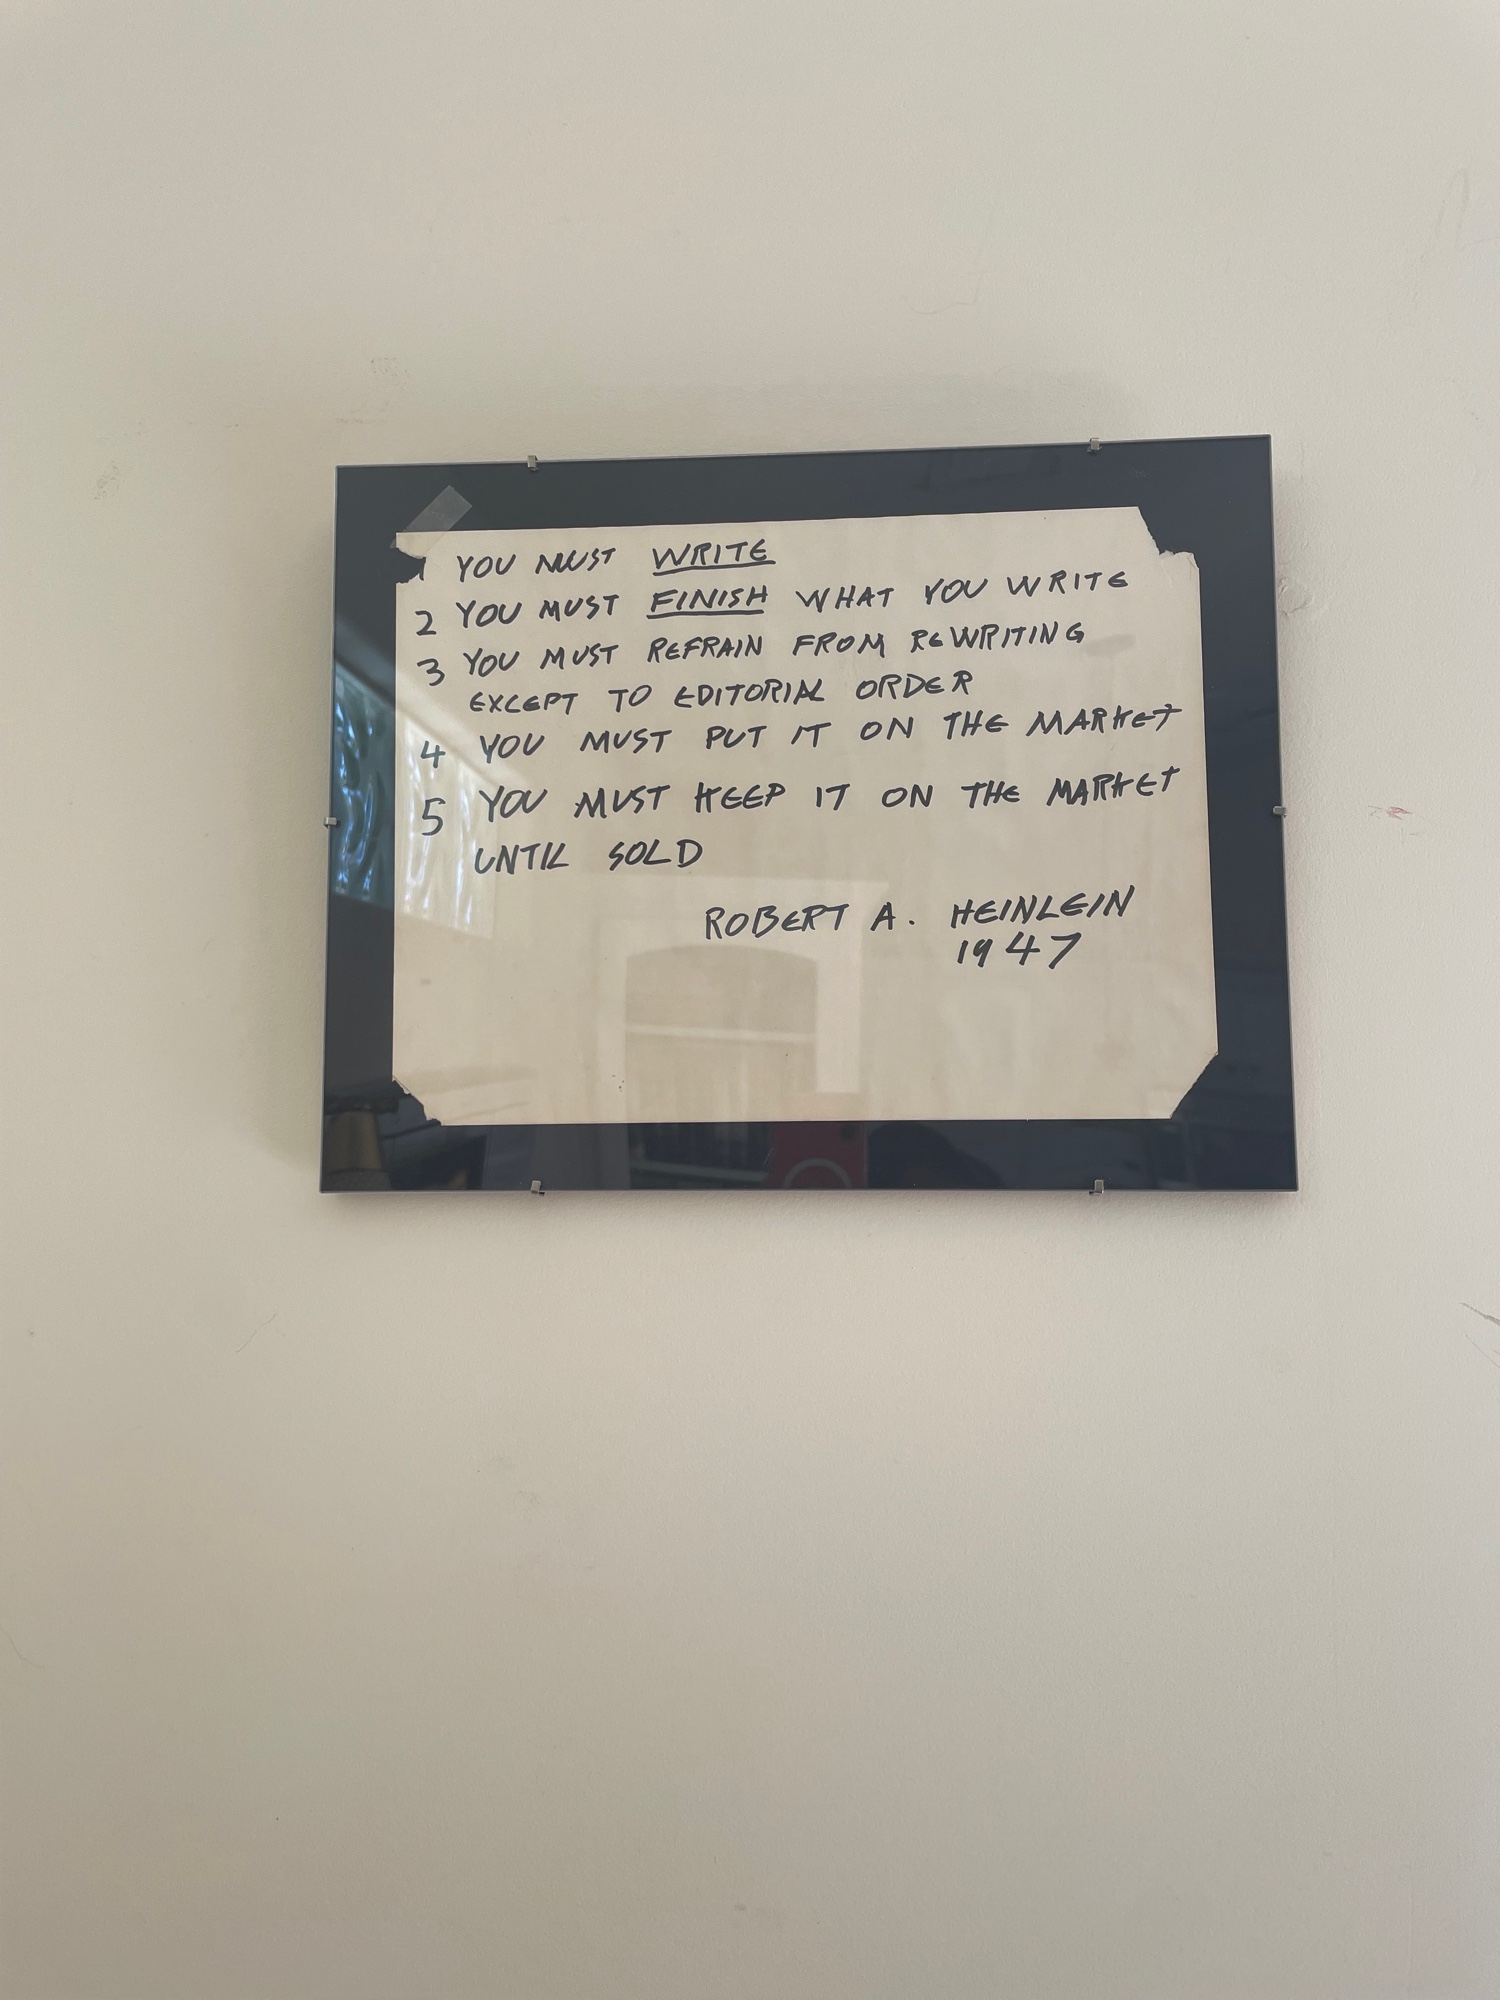 1 YOU MUST WRITE
2 YOU MUST FINISH WHAT YOU WRITE
3 YOU MUST REFRAIN FROM REWRITING
EXCEPT TO EDITORIAL ORDER
4 YOU MUST PUT IT ON THE MARKET
5 YOU MUST KEEP IT ON THE MARKET
UNTIL SOLD
ROBERT A. HEINLEIN
1947